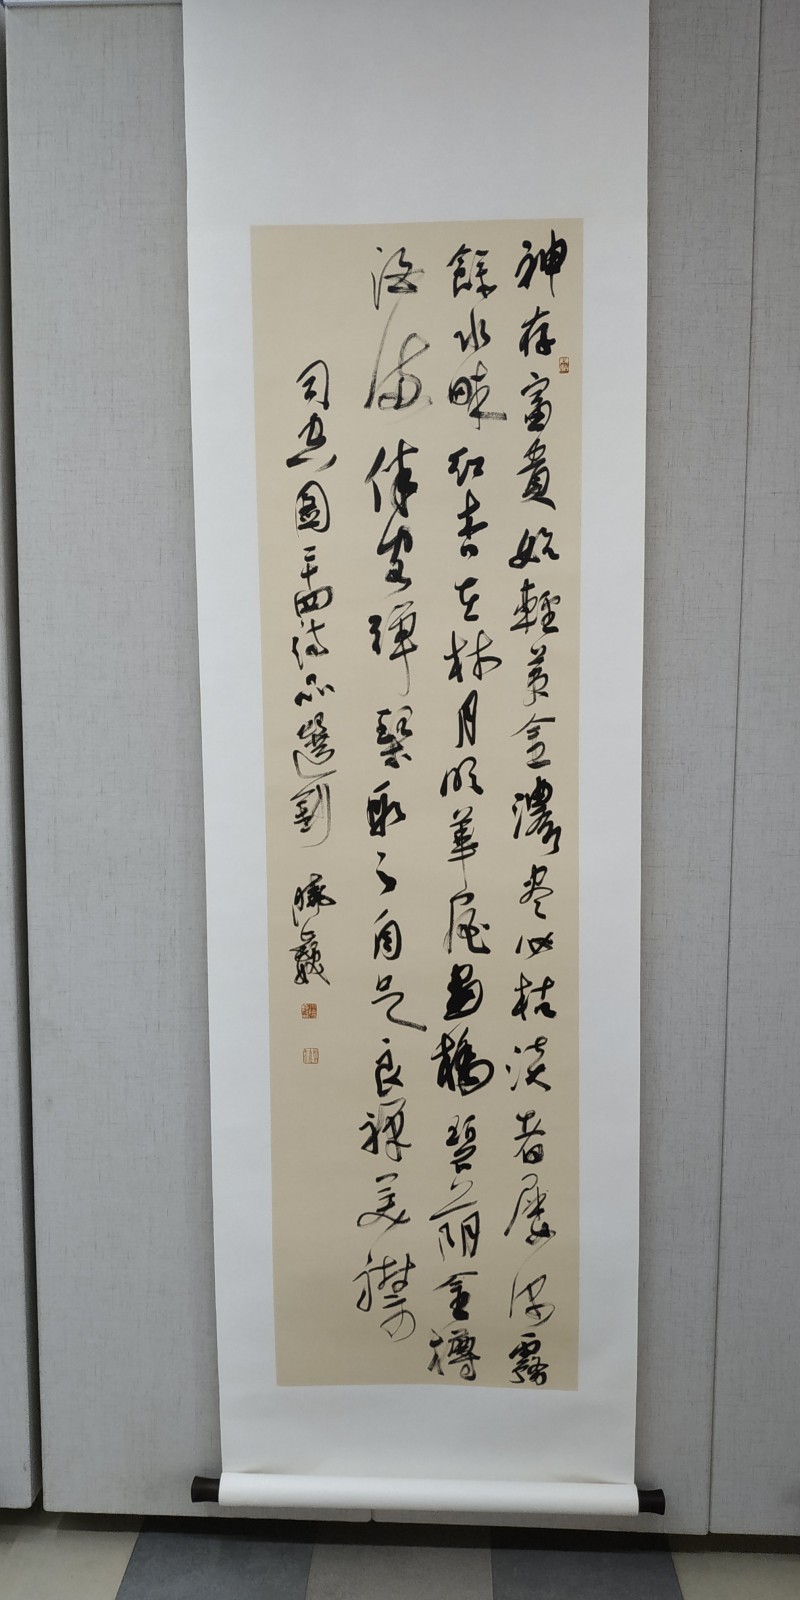 神存富貴始輕黃金濃盡必枯淡者屢深霧
餘水畔紅杏在林月明華屋畫橋碧陰金樽
酒滿伴客彈琴取之自足良殫美襟
司空圖二十四詩品選劉